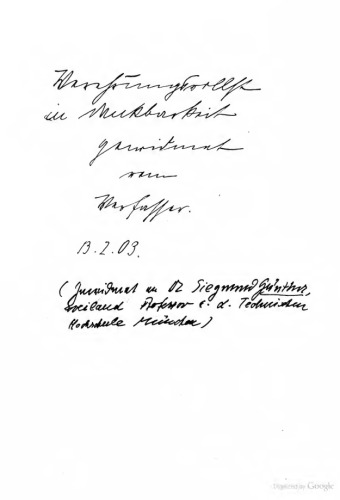 Verehrungsvollst
in Dankbarkeit
gewidmet
vom
Verfasser.
13.2.03.
( an Dr Siegmund Günther,
weiland Professor a. d. Technischen
Hochschule München)
Digitized by Google